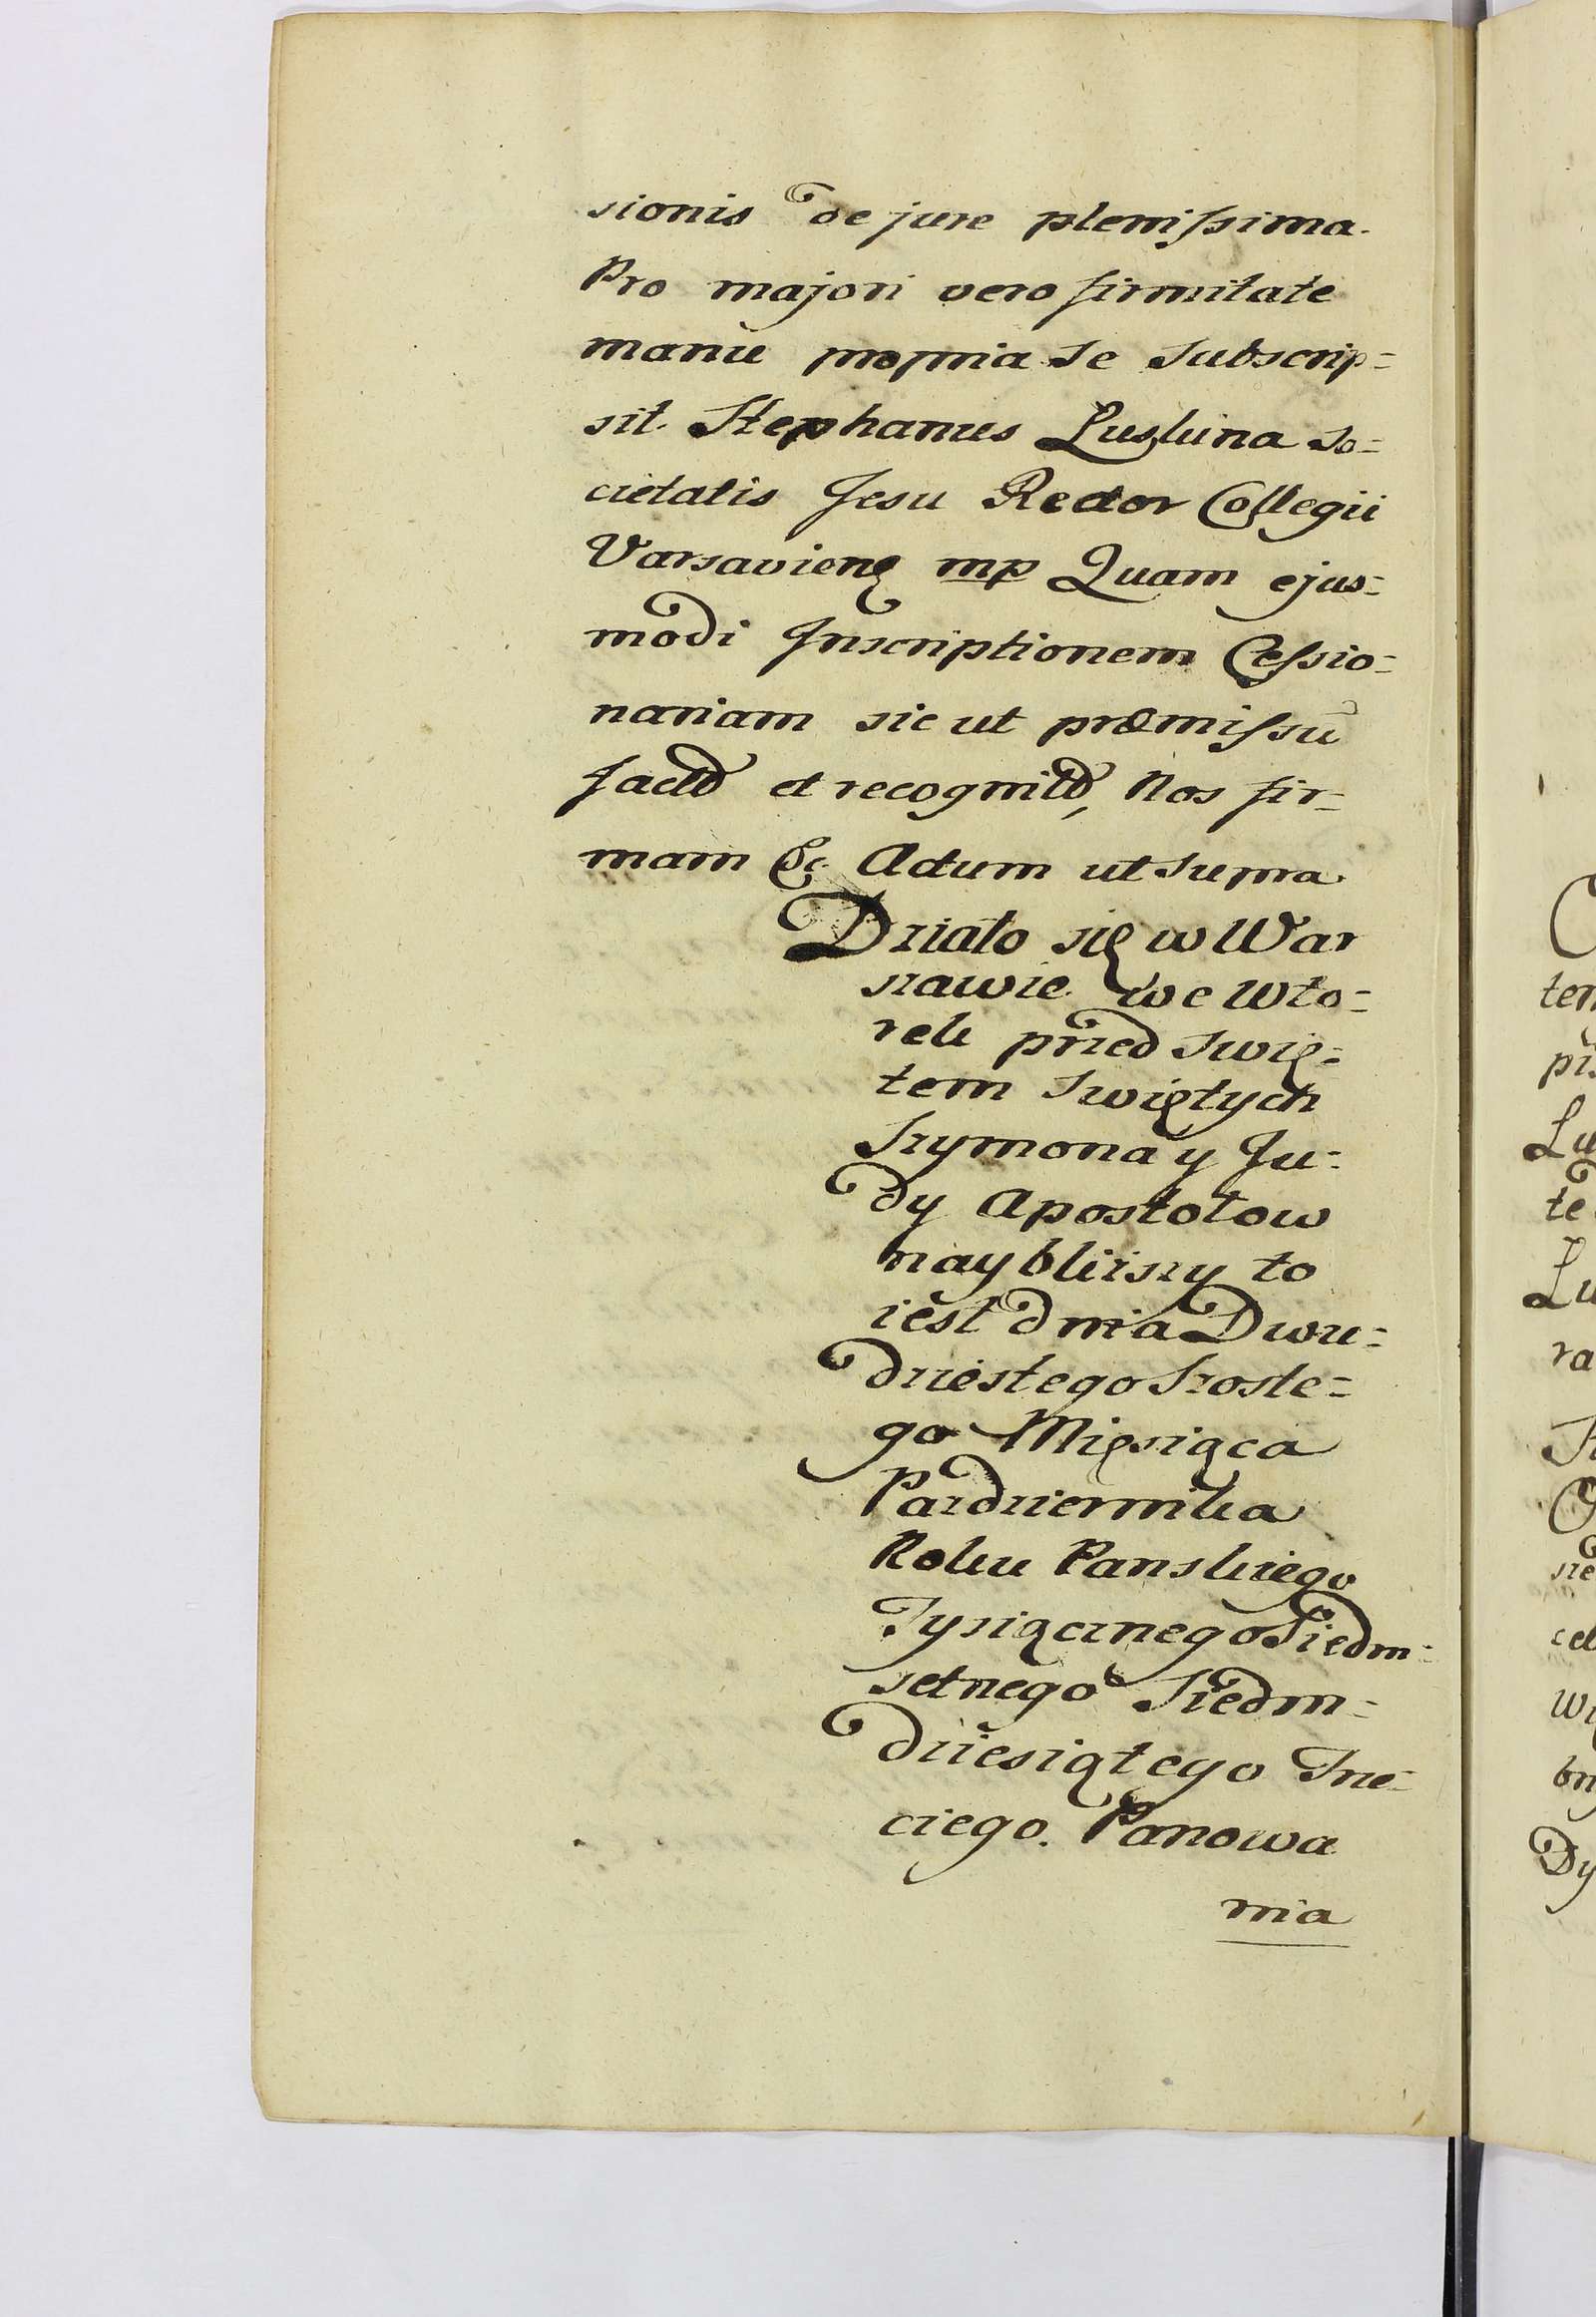 sionis de jure plenissima.
Pro majori vero firmitate
manu propria se subscrip=
sit. Stephanus Luskina So=
cietatis Jesu Rector Collegii
Varsavieñ mp Quam ejus=
modi Inscriptionem Cessio=
nariam sic ut præmissũ
factã et recognitã, Nos fir=
mam &c Actum ut supra
Działo się w War
szawie we Wto=
rek przed Swię=
tem Swiętych
Szymona y Ju=
dy Apostołow
naybliższy to
iest dnia Dwu=
dziestego Szoste=
go Mięsiąca
Pazdziernika
Roku Panskiego
Tysiącznego Siedm=
setnego Siedm=
dziesiątego Trze=
ciego. Panowa
nia
ten
Lu
te
Lu
ra
cel
Dy